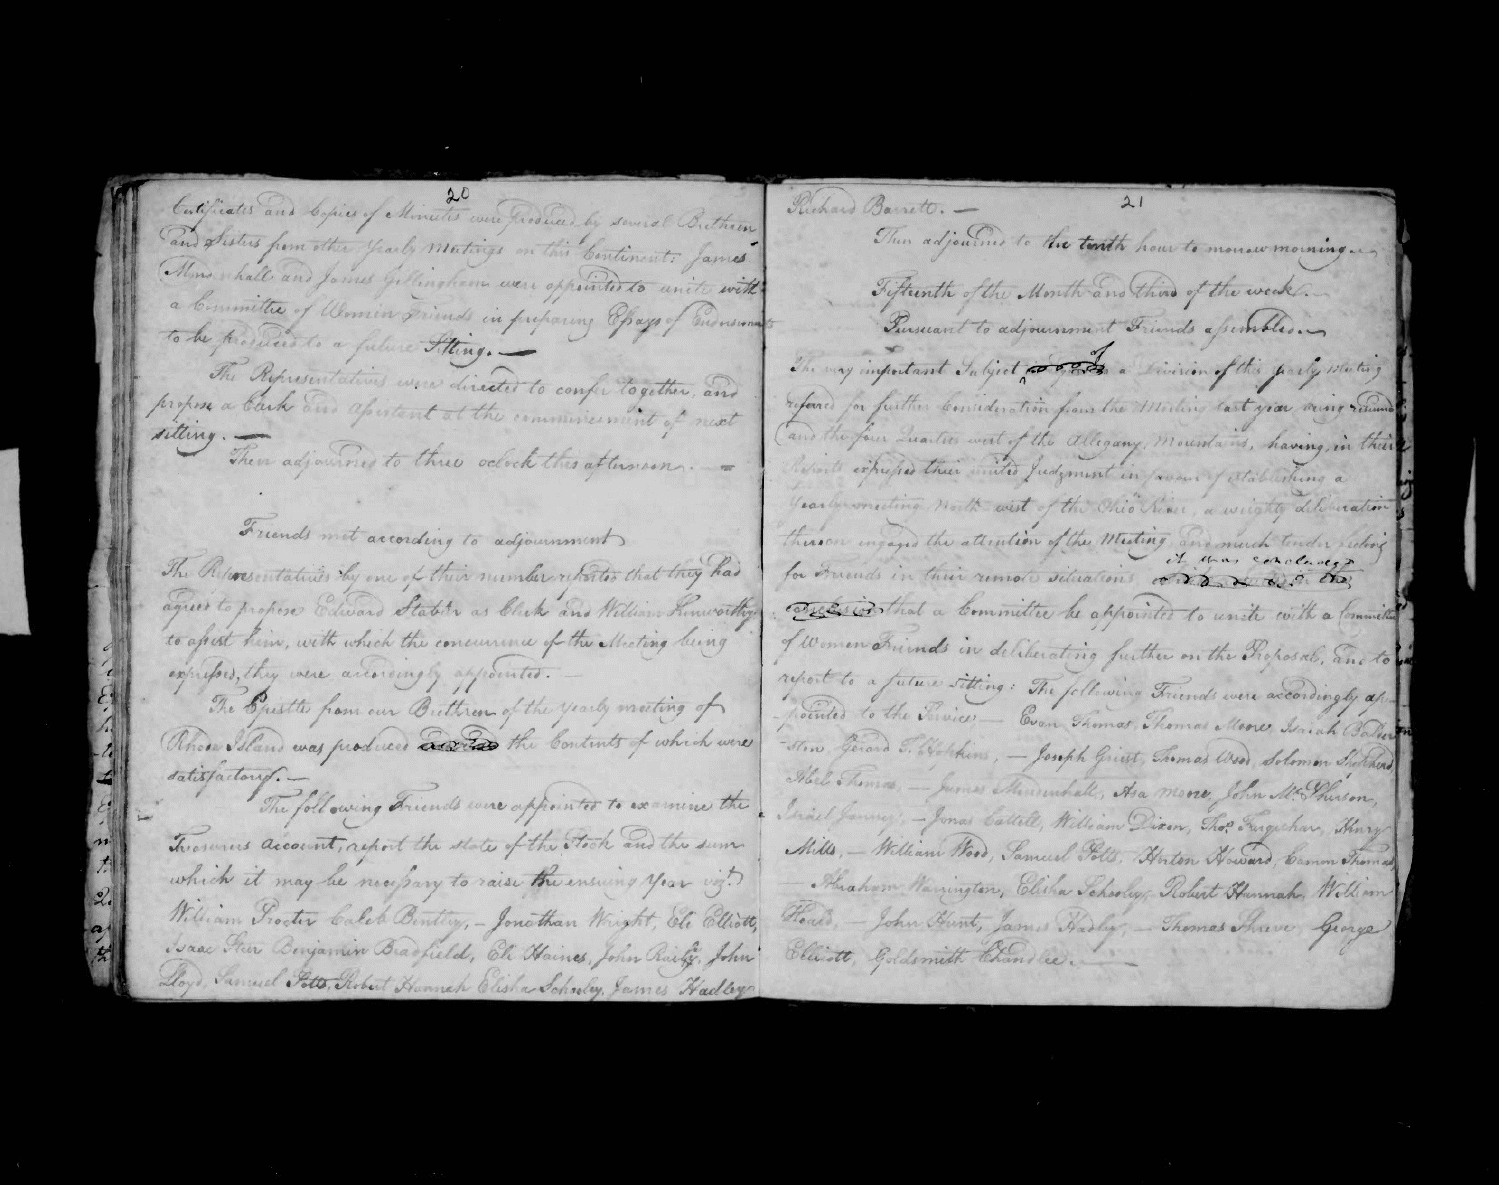 20
Certificates and Copies of Minutes were produced by several Brethren
and Sisters from other Yearly Meetings on this Continent: James
Mendenhall and James Gillingham were appointed to unite with
a Committee of Women Friends in preparing Essays of Endorsements
to be produced to a future Sitting. —
The Representatives were directed to confer together, and
propose a Clerk and Assistant at the commencement of next
sitting. —
Then adjourned to three oclock this afternoon. —
Friends met according to adjournment
The Representatives by one of their number reported that they had
agreed to propose Edward Stabler as Clerk and William Kenworthy
to assist him, with which the concurrence of the Meeting being
expressed, they were accordingly appointed. —
The Epistle from our Brethren of the Yearly meeting of
Rhode Island was produced the Contents of which were
satisfactory. —
The following Friends were appointed to examine the
Treasurers account, report the state of the Stock and the sum
which it may be necessary to raise the ensuing Year vizt.
William Procter Caleb Bentley, — Jonathan Wright, Eli Elliott,
Isaac Steer Benjamin Bradfield, Eli Haines, John John
Lloyd, Samuel Potts, Robert Hannah Elisha Schooley, James Hadley
21
Richard Barrett. —
Then adjourned to the tenth hour to morrow morning. —
Fifteenth of the Month and third of the week. —
Pursuant to adjournment Friends assembled. —
The very important Subject of a Division of this yearly Meeting
referred for further Consideration from the Meeting last year being
and the four Quarters west of the Allegany Mountains, having in their
Reports expressed their united Judgment in favour of establishing a
Yearly meeting North-west of the Ohio River, a weighty deliberation
thereon engaged the attention of the Meeting, and much tender feeling
it was concluded
for Friends in their remote situations
that a Committee be appointed to unite with a Committee
of Women Friends in deliberating further on the Proposal, and to
report to a future sitting: The following Friends were accordingly ap-
-pointed to the Service — Evan Thomas, Thomas Moore, Isaiah Balder
-ston, Gerard T. Hopkins, — Joseph Griest, Thomas Wood, Solomon Shepherd
Abel Thomas, — James Mendenhall, Asa Moore, John McPherson,
Israel Janney, — Jonas Cattell, William Dixon, Thos. Farquhar, Henry
Mills, — William Wood, Samuel Potts, Horton Howard, Camm Thomas,
— Abraham Warrington, Elisha Schooley, Robert Hannah, William
Heald, — John Hunt, James Hadley, — Thomas Shreve, George
Elliott, Goldsmith Chandlee. —